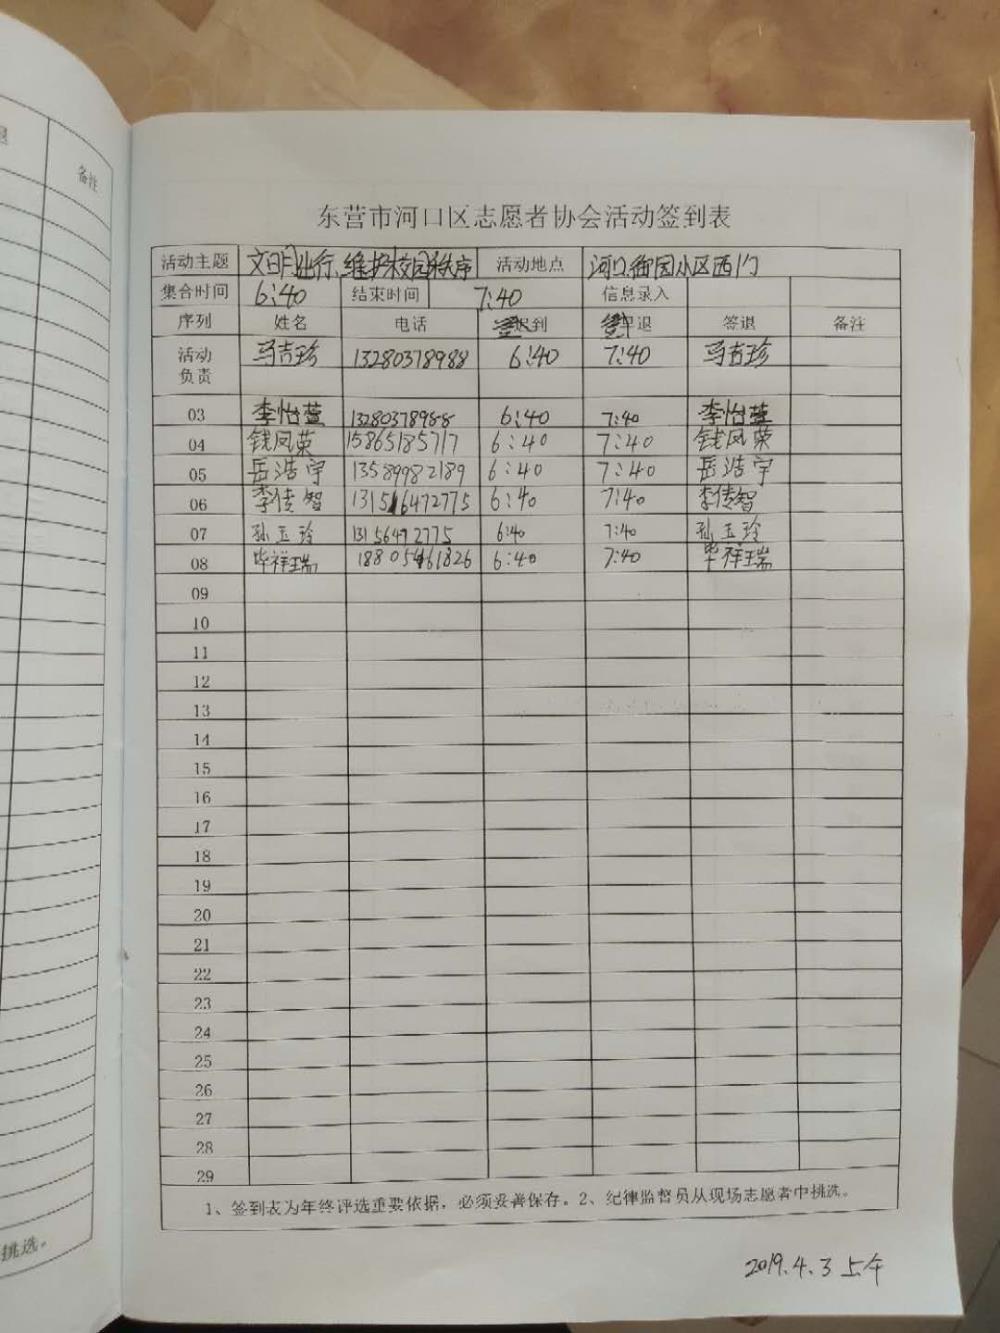 备注
挑选。
东营市河口区志愿者协会活动签到表
活动主题 文明出行、维护校园秩序 活动地点 河口御园小区西门
集合时间 6:40 结束时间 7:40 信息录入
序列 姓名 电话 签到 早退 签退 备注
活动负责 马吉珍 13280378988 6:40 7:40 马吉珍
03 李怡萱 13280378988 6:40 7:40 李怡萱
04 钱凤荣 15865185717 6:40 7:40 钱凤荣
05 岳浩宇 13589982189 6:40 7:40 岳浩宇
06 李传智 13156472775 6:40 7:40 李传智
07 孙玉玲 13156472775 6:40 7:40 孙玉玲
08 毕祥瑞 18805461826 6:40 7:40 毕祥瑞
09
10
11
12
13
14
15
16
17
18
19
20
21
22
23
24
25
26
27
28
29
1、签到表为年终评选重要依据，必须妥善保存。2、纪律监督员从现场志愿者中挑选。
2019.4.3 上午